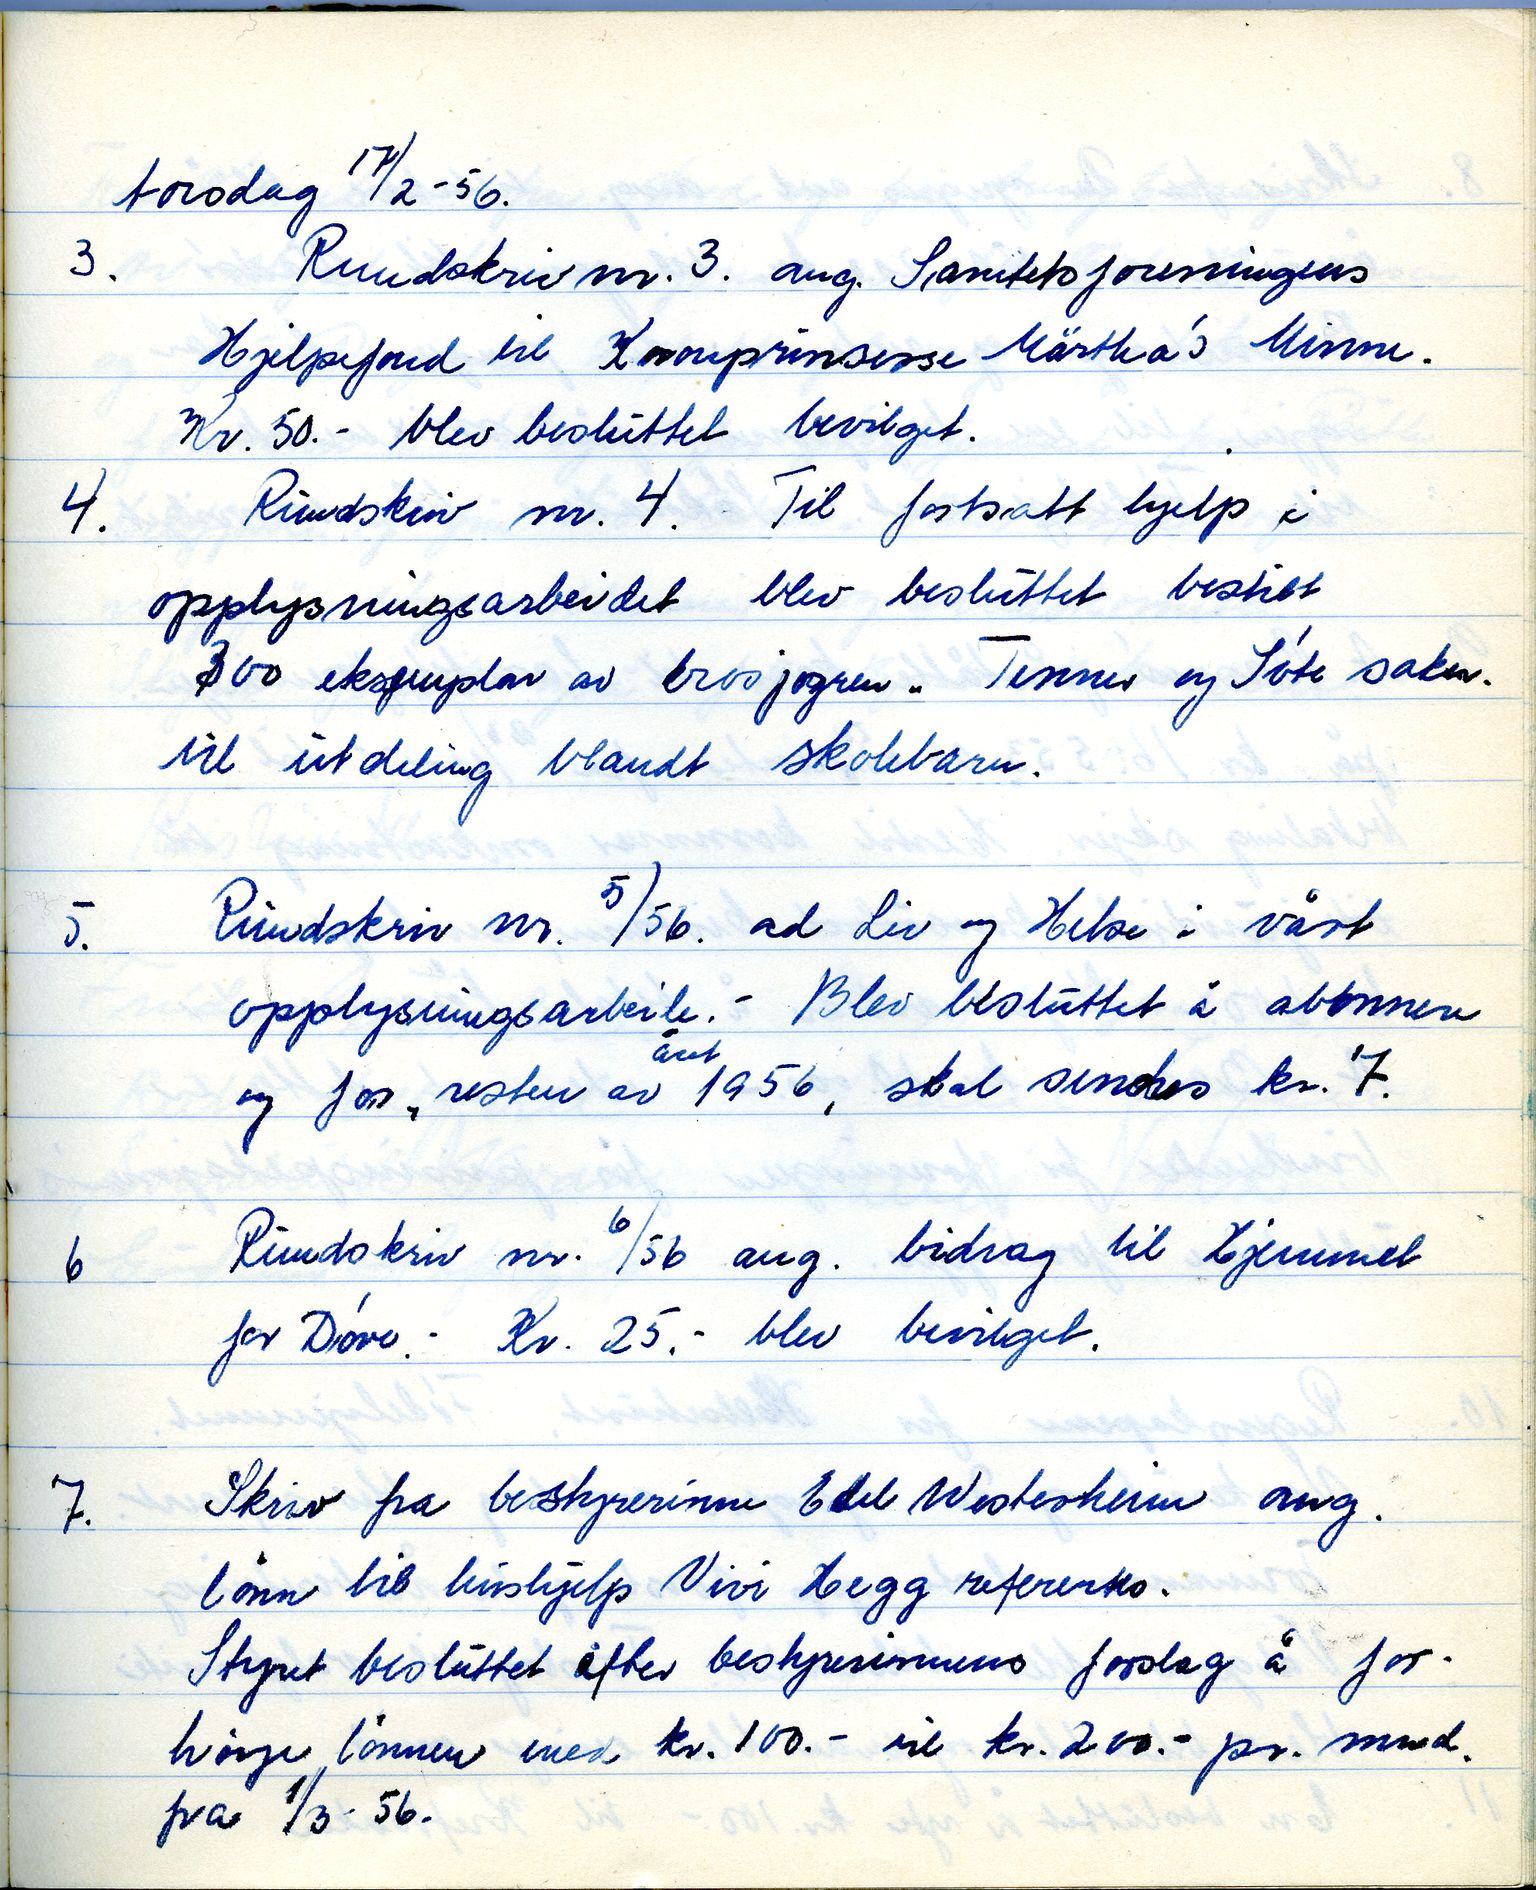 torsdag 17/2-56.
3. Rundskriv nr. 3. ang. Sanitetsforeningens
Hjelpefond til Kronprinsesse Märtha's Minne.
Kr. 50.- blev besluttet bevilget.
4. Rundskriv nr. 4. Til fortsatt hjelp i
opplysningsarbeidet blev besluttet bestilt
300 eksemplar av brosjyren "Tenner og Söte saker.
til utdeling blandt skolebarn.
5. Rundskriv nr. 5/56. ad Liv og Helse i vårt
opplysningsarbeide. - Blev besluttet å abonnere
og for resten av året 1956, skal sendes kr. 7.
6 Rundskriv nr. 6/56 ang. bidrag til Hjemmet
for Döve. - Kr. 25.- blev bevilget.
7. Skriv fra bestyrerinne Edel Westerheim ang.
lönn til hushjelp Vivi Hegg refererts.
Styret besluttet efter bestyrerinnens forslag å for-
höye lönnen med kr. 100.- til kr. 200.- pr. mnd.
fra 1/3-56.